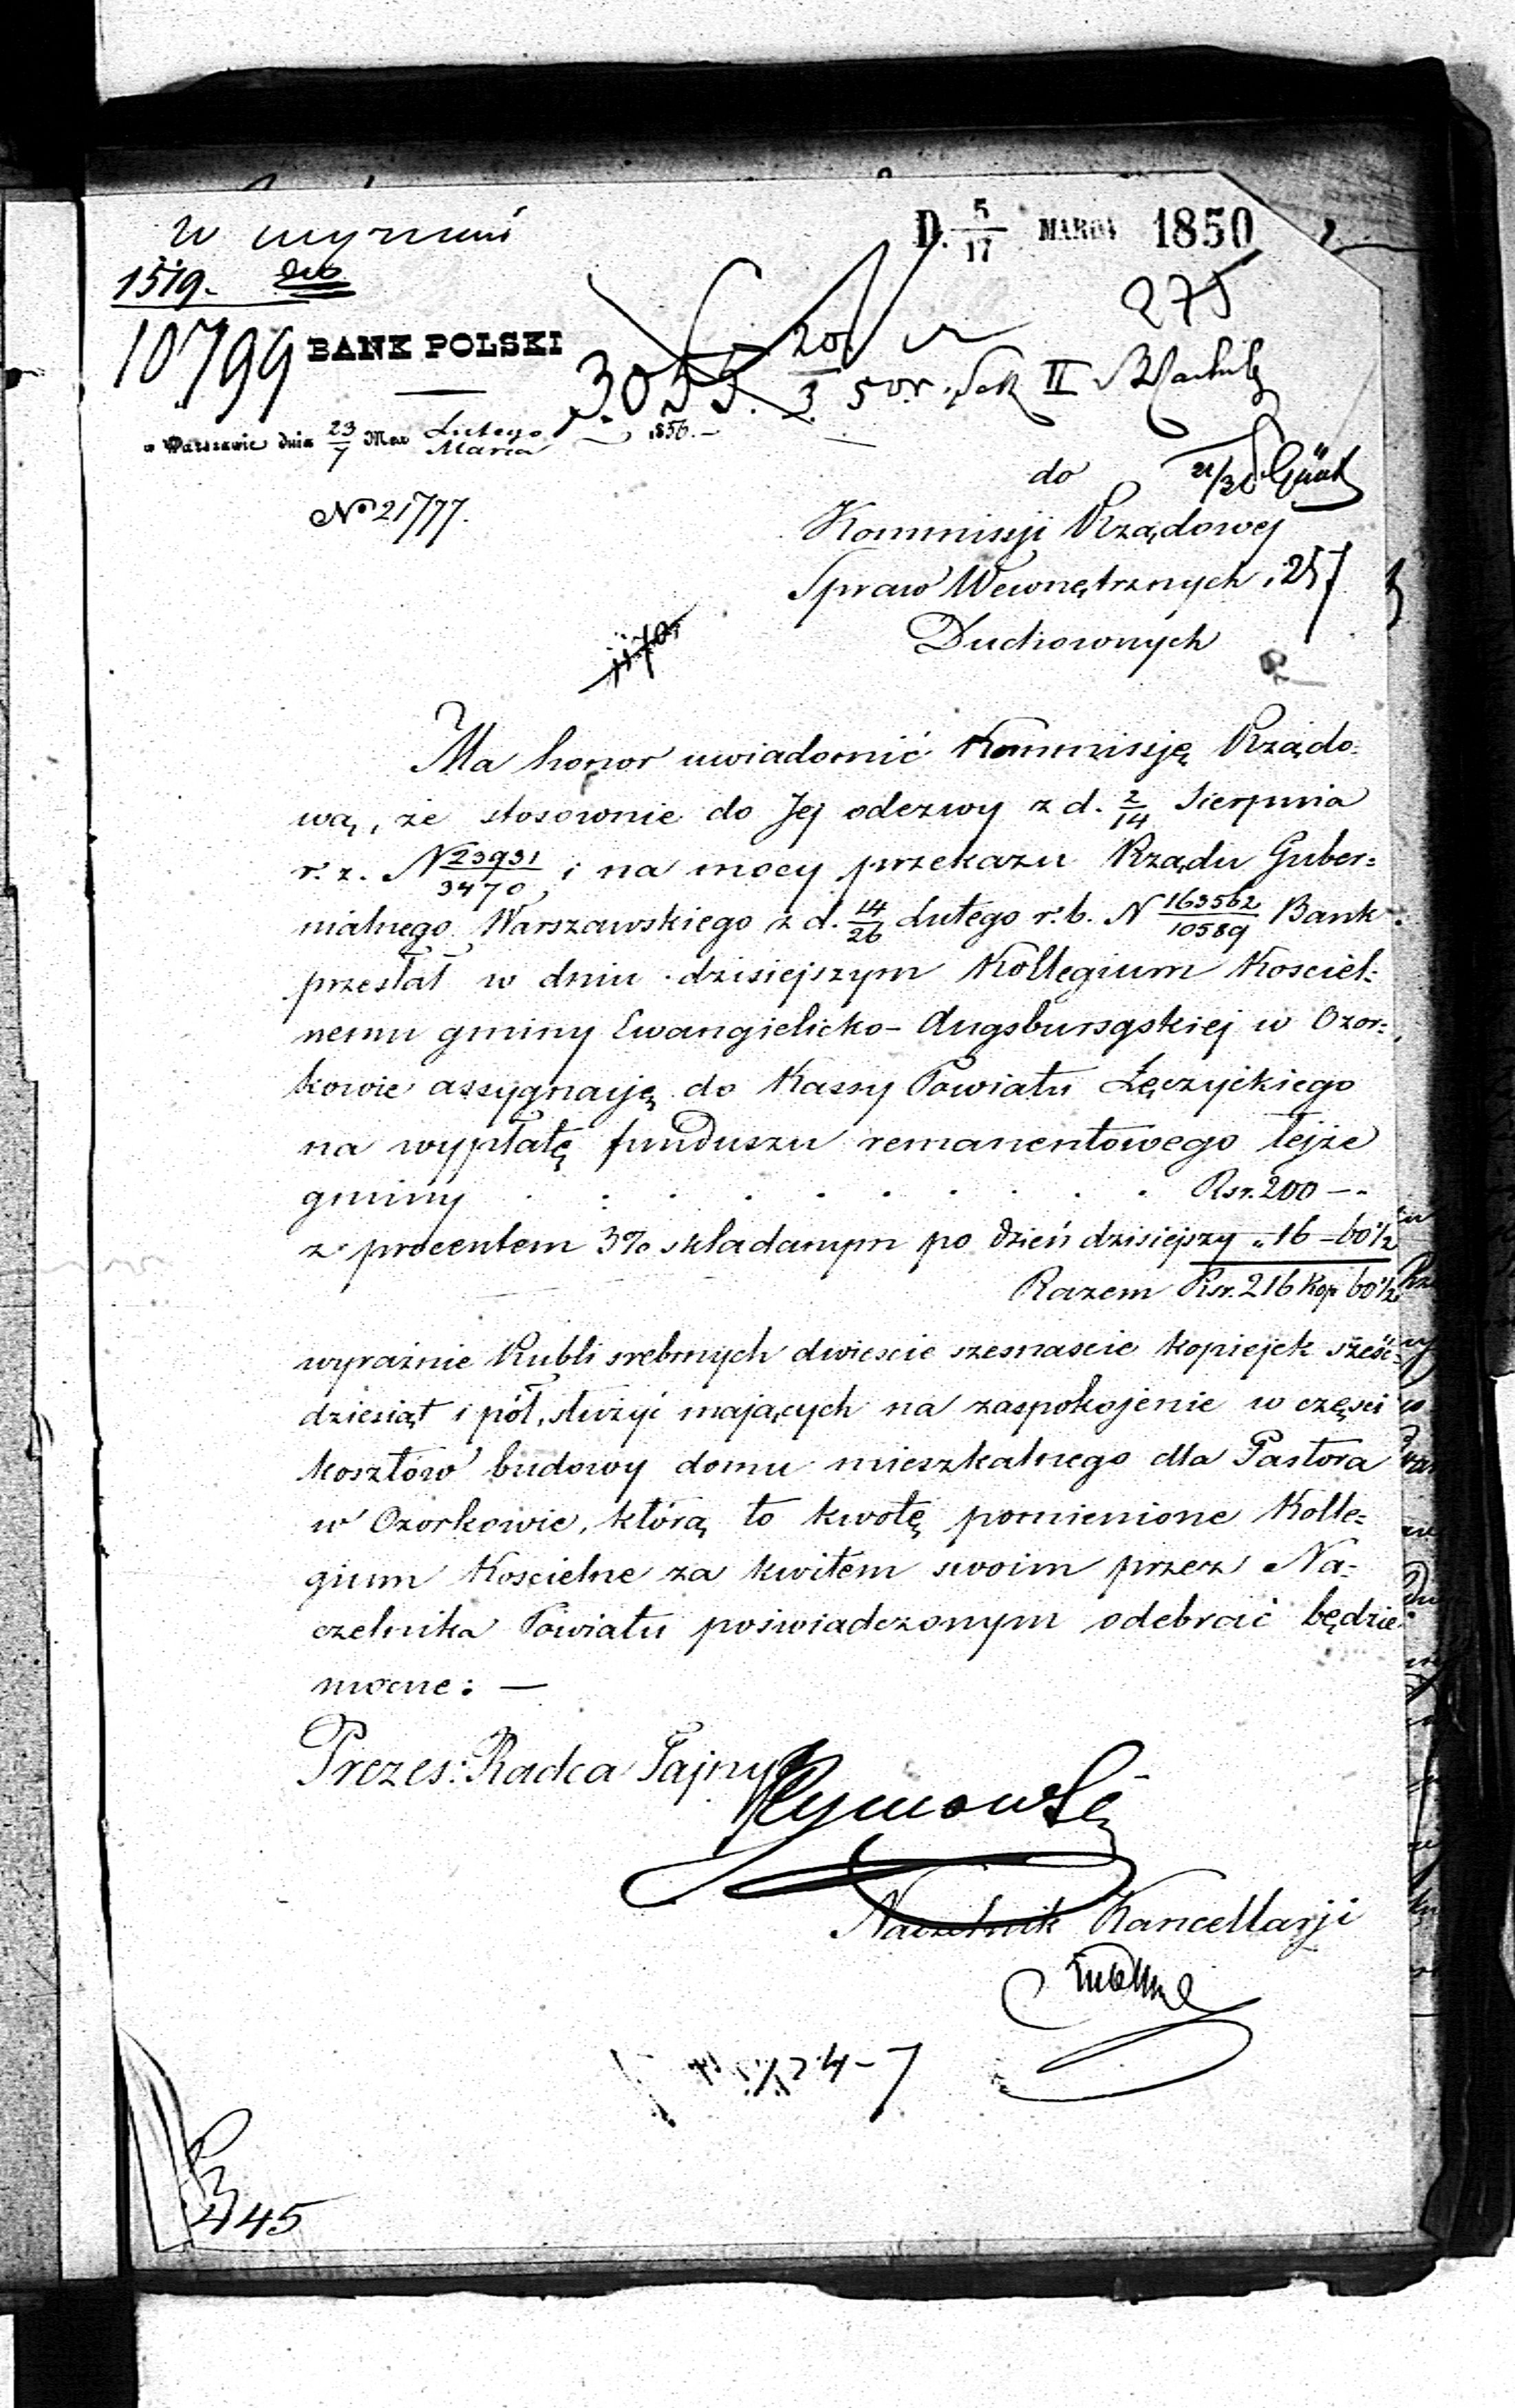 D. 5/17 MARCA 1850
1519.
10799
BANK POLSKI
275
3055. 20/3 50 r. Sek II
w Warszawie dnia 23/7 Mca Lutego/Marca 1850.
do
No 21777.
Kommissji Rządowej
Spraw Wewnętrznych i 257
Duchownych
Ma honor uwiadomić Kommissję Rządo=
wą, że stosownie do Jej odezwy z d. 2/14 Sierpnia
r. z. N 23931/3470, i na mocy przekazu Rządu Guber=
nialnego Warszawskiego z d. 14/26 Lutego r. b. N 163562/10589 Bank
przesłał w dniu dzisiejszym Kollegium Kosciel=
nemu gminy Ewangielicko-Augsbursgskiej w Ozor=
kowie assygnację do Kassy Powiatu Łęczyckiego
na wypłatę funduszu remanentowego tejże
gminy . . . . . . . . . Rsr. 200 —
z procentem 3% składanym po dzień dzisiejszy „ 16 – 60 1/2
Razem Rsr. 216 Kop 60 1/2
wyraźnie Rubli srebrnych dwieście szesnascie kopiejek sześć=
dziesiąt i pół, służyć mających na zaspokojenie w części
kosztów budowy domu mieszkalnego dla Pastora
w Ozorkowie, którą to kwotę pomienione Kolle=
gium Koscielne za kwitem swoim przez Na=
czelnika Powiatu poświadczonym odebrać będzie
mocne: —
Prezes: Radca Tajny
Tymowski
Naczelnik Kancellarji
445